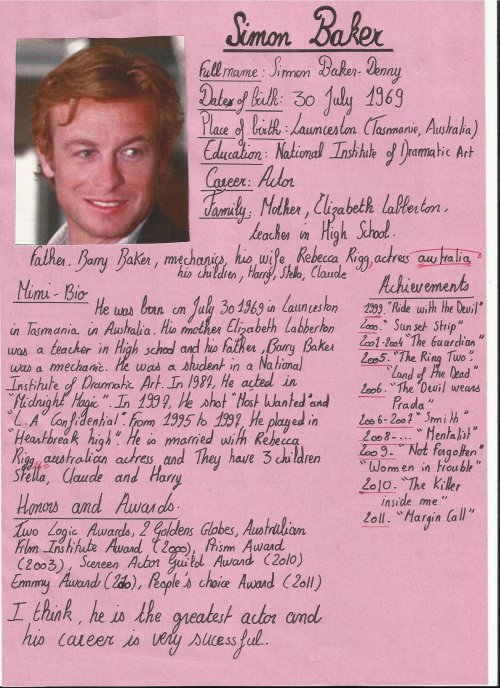 Simon Baker
Full name: Simon Baker-Denny
Date of birth: 30 July 1969
Place of birth: Launceston (Tasmanie, Australia)
Education: National Institute of Dramatic Art
Career: Actor
Family: Mother, Elizabeth Labberton,
teacher in High School.
Father. Barry Baker, mechanics, his wife Rebecca Rigg, actress australia
his children, Harry, Stella, Claude
Mimi-Bio
He was born on July 30 1969 in Launceston
in Tasmania in Australia. His mother Elizabeth Labberton
was a teacher in High school and his Father, Barry Baker
was a mechanic. He was a student in a National
Institute of Dramatic Art. In 1987, He acted in
"Midnight Magic". In 1997. He shot "Most Wanted" and
"L.A Confidential". From 1995 to 1997, He played in
"Heartbreak high". He is married with Rebecca
Rigg, australian actress and They have 3 children
Stella, Claude and Harry
Achievements
1999. "Ride with the Devil"
2000. "Sunset Strip"
2001-2004 "The Guardian"
2005. "The Ring Two".
"Land of the Dead"
2006. "The Devil wears
Prada"
2006-2007 "Smith"
2008-... "Mentalist"
2009. "Not Forgotten"
"Women in trouble"
2010. "The Killer
inside me"
2011. "Margin Call"
Honors and Awards.
Two Logic Awards, 2 Goldens Globes, Australian
Film Institute Award (2000), Prism Award
(2003), Screen Actor Guild Award (2010)
Emmy Award (2010), People's choice Award (2011)
I think, he is the greatest actor and
his career is very sucessful.